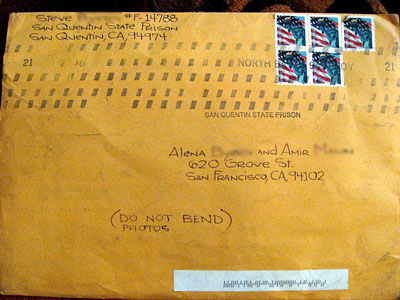 Steve #F-14788
San Quentin State Prison
San Quentin, CA, 94974
21 NORTH NOV
SAN QUENTIN STATE PRISON
Alena and Amir
620 Grove St.
San Francisco, CA, 94102
(DO NOT BEND)
PHOTOS